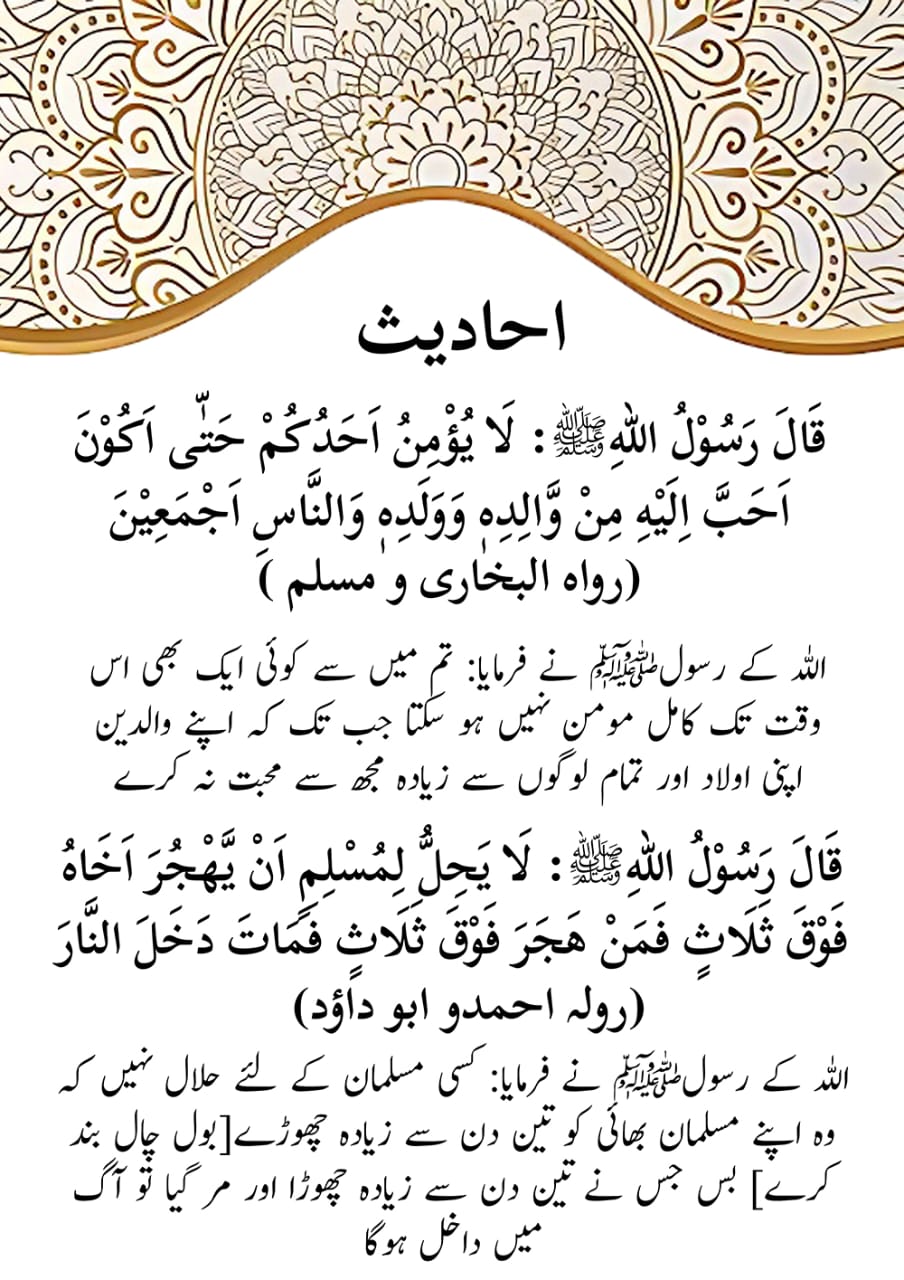 احادیث
قَالَ رَسُوْلُ اللهِﷺ: لَا یُؤْمِنُ اَحَدُکُمْ حَتّٰی اَکُوْنَ
اَحَبَّ اِلَیْهِ مِنْ وَّالِدِهٖ وَوَلَدِهٖ وَالنَّاسِ اَجْمَعِیْنَ
(رواه البخاری و مسلم )
اللہ کے رسولﷺ نے فرمایا: تم میں سے کوئی ایک بھی اس
وقت تک کامل مومن نہیں ہو سکتا جب تک کہ اپنے والدین
اپنی اولاد اور تمام لوگوں سے زیادہ مجھ سے محبت نہ کرے
قَالَ رَسُوْلُ اللهِﷺ: لَا یَحِلُّ لِمُسْلِمٍ اَنْ یَّهْجُرَ اَخَاهُ
فَوْقَ ثَلَاثٍ فَمَنْ هَجَرَ فَوْقَ ثَلَاثٍ فَمَاتَ دَخَلَ النَّارَ
(رولہ احمدو ابو داؤد)
اللہ کے رسولﷺ نے فرمایا: کسی مسلمان کے لئے حلال نہیں کہ
وہ اپنے مسلمان بھائی کو تین دن سے زیادہ چھوڑے[بول چال بند
کرے] بس جس نے تین دن سے زیادہ چھوڑا اور مر گیا تو آگ
میں داخل ہوگا